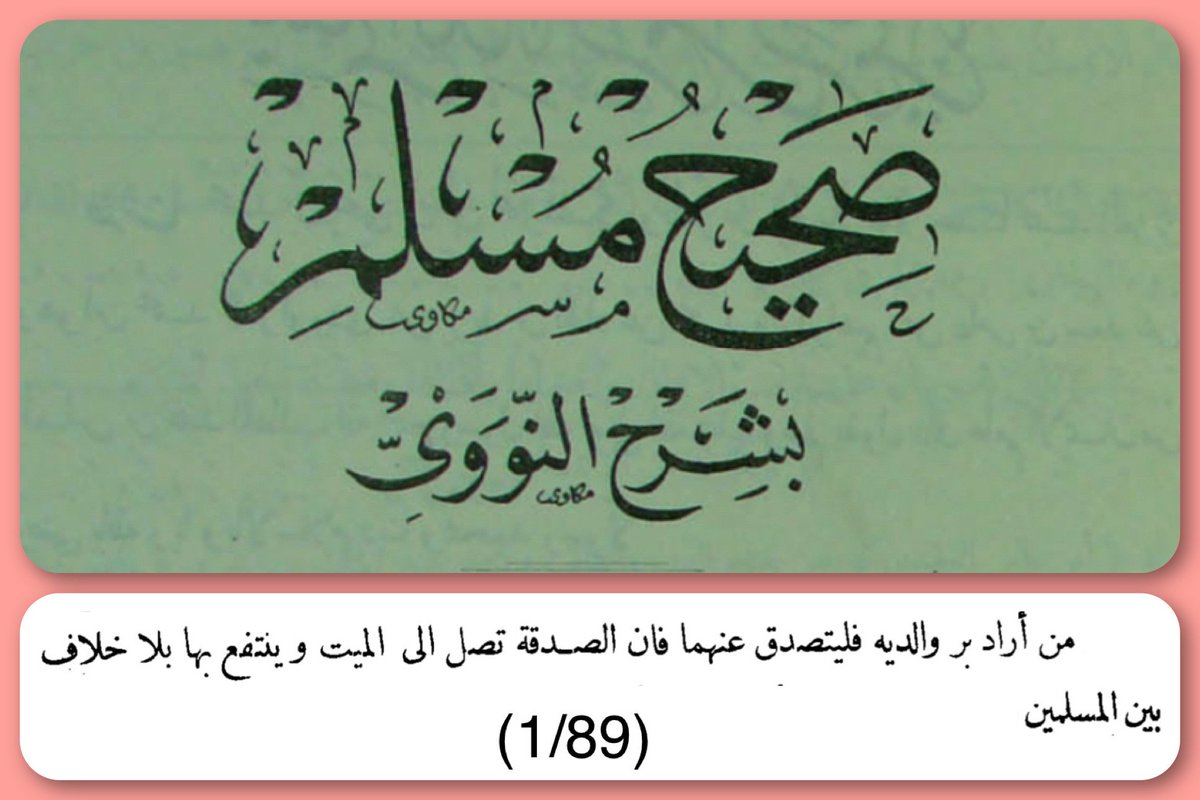 صَحِيحُ مُسْلِمْ
مكاوى
بِشَرْحِ النَّوَوِيِّ
مكاوى
من أراد بر والديه فليتصدق عنهما فان الصدقة تصل الى الميت وينتفع بها بلا خلاف
بين المسلمين
(1/89)